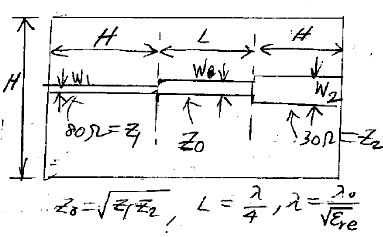 H L H
H W₁ W₀ W₂
80Ω = Z₁ Z₀ 30Ω = Z₂
Z₀ = √Z₁Z₂ , L = λ/4 , λ = λ₀/√εre